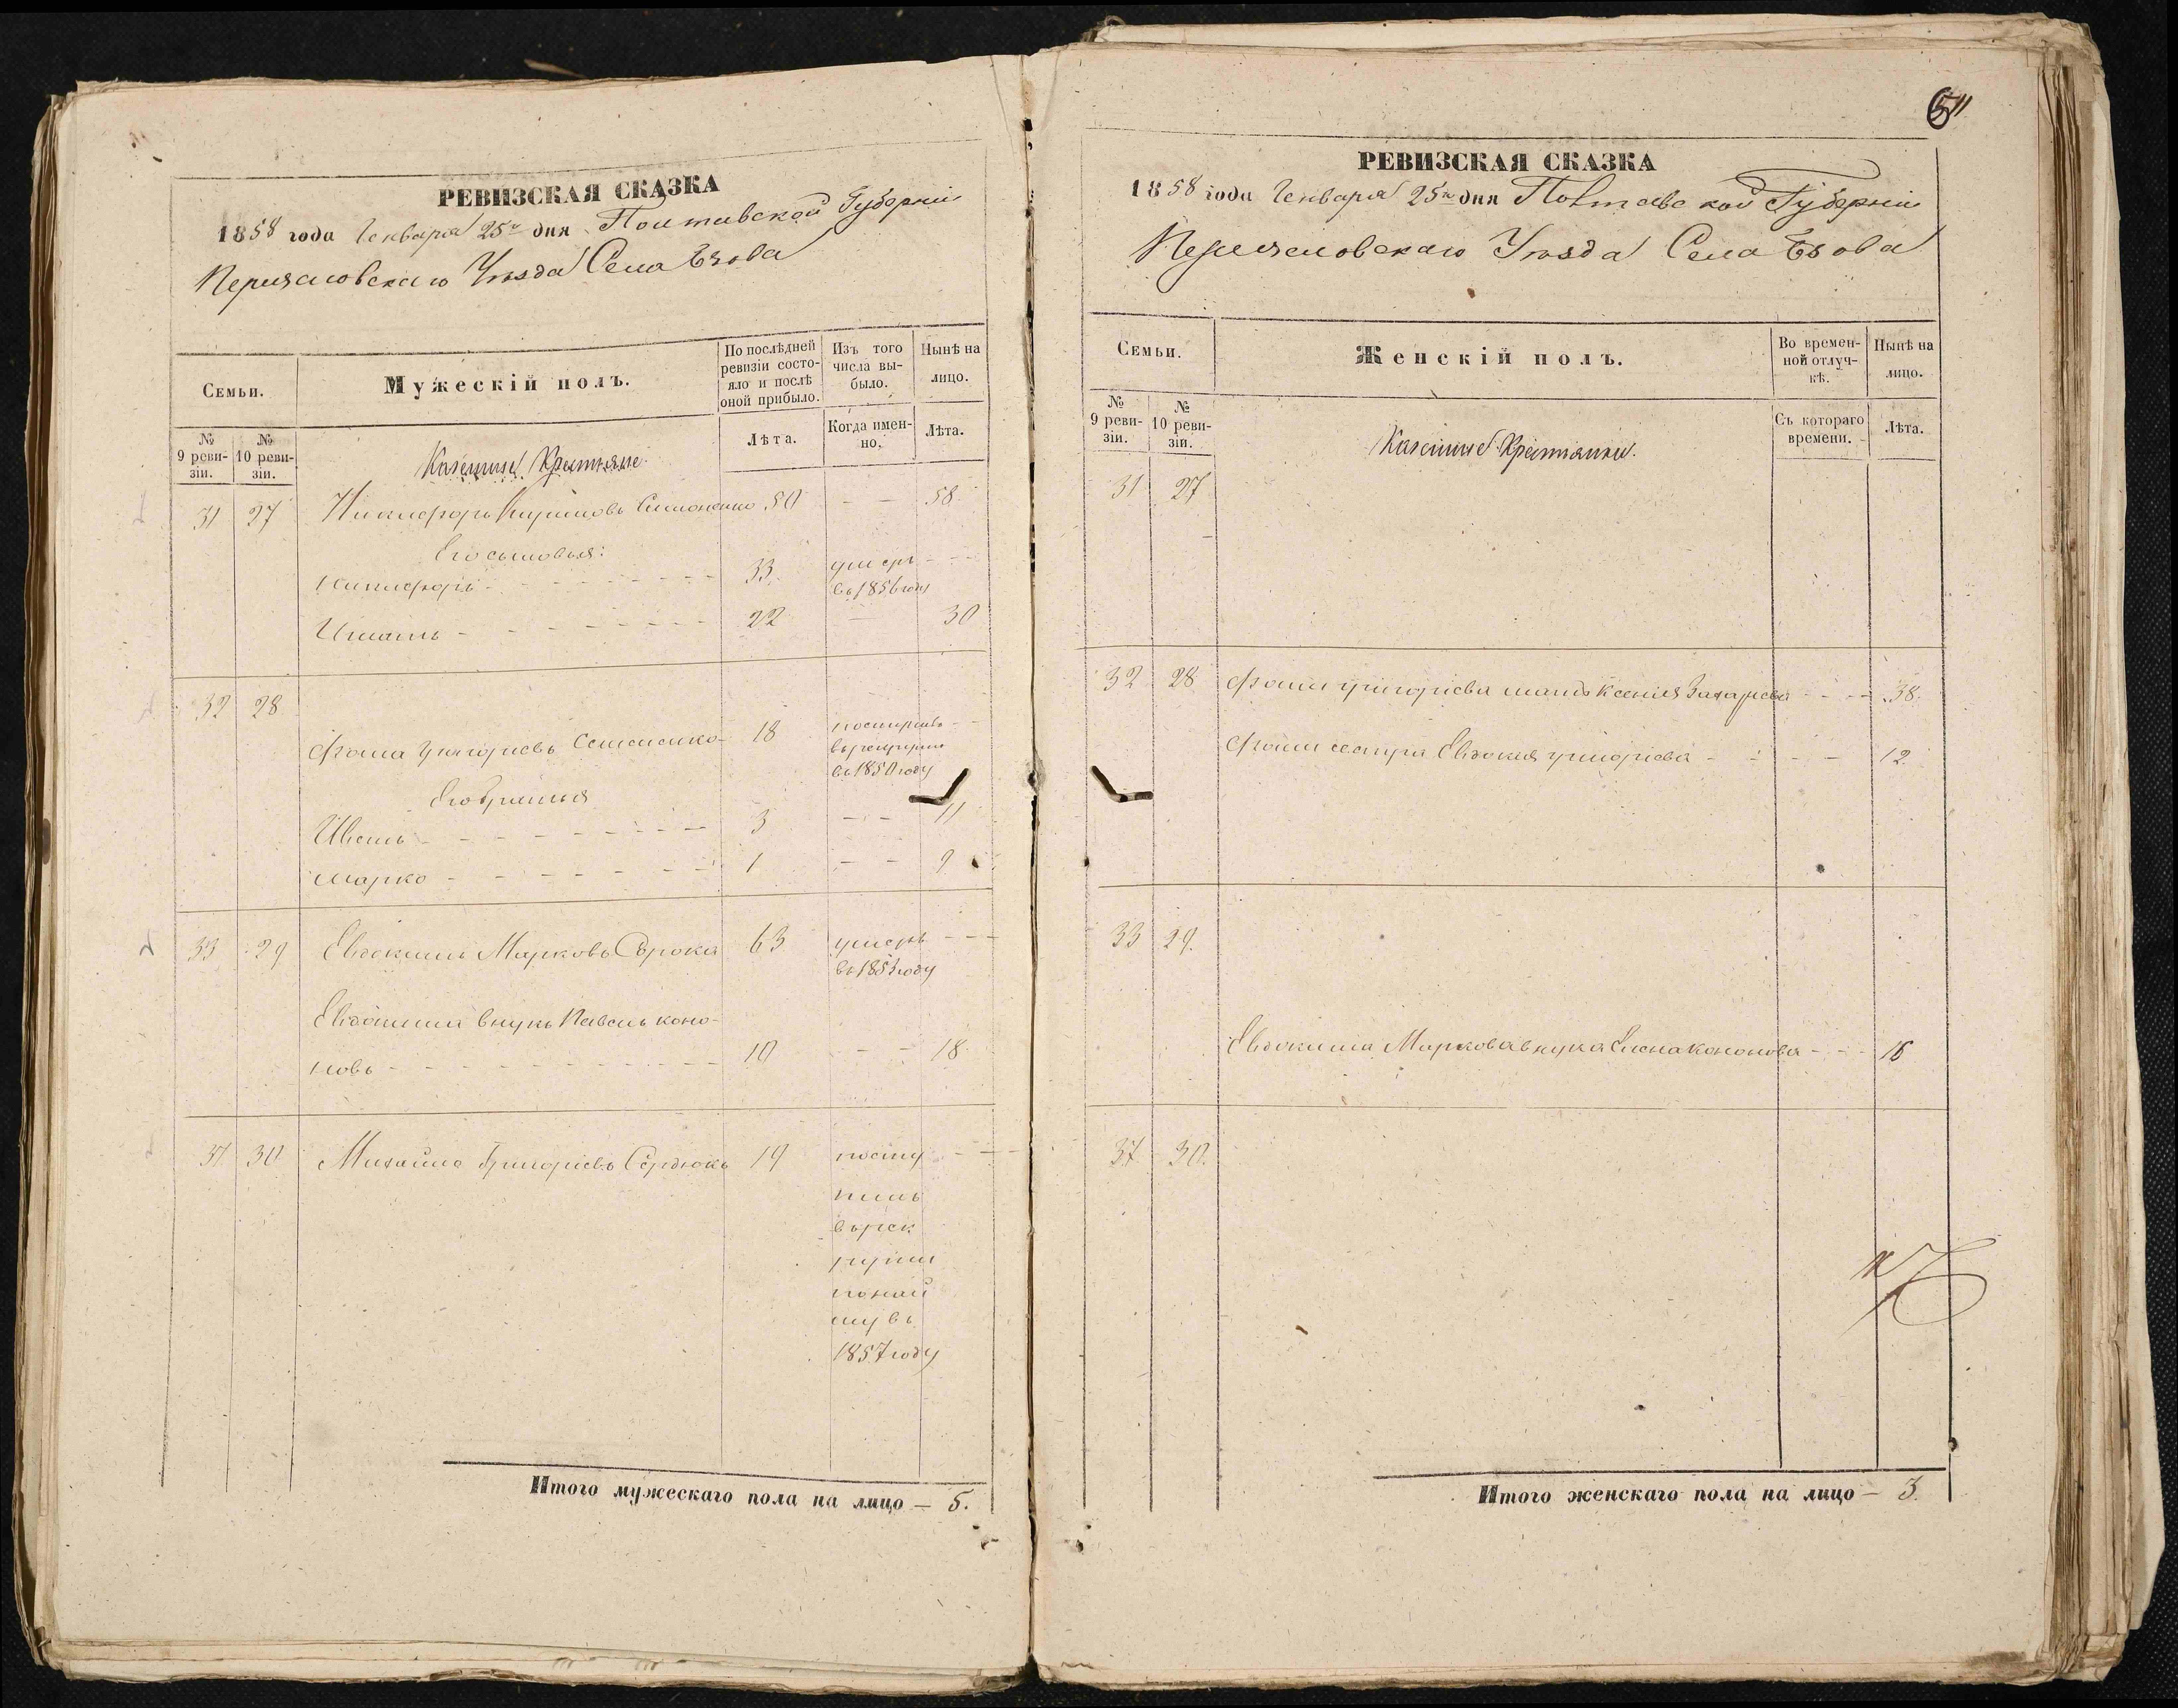 РЕВИЗСКАЯ СКАЗКА
1858 года Генваря 25го дня Полтавской Губерніи
Переяславскаго Уѣзда Села
Семьи.
Мужескій полъ.
По послѣдней ревизіи состояло и послѣ оной прибыло.
Изъ того числа выбыло.
Нынѣ на лицо.
№ 9 ревизіи.
№ 10 ревизіи.
Лѣта.
Когда именно.
Лѣта.
Казенные Крестьяне
31 27 Никифоръ 50 — — 58
Его сыновья:
Никифоръ 33 умеръ — —
въ 1856 году
22 — 30
32 28
Фома Григорьевъ 18 поступилъ — —
въ рекруты
въ 1850 году
Его братья
Иванъ 3 — — 11
Марко 1 — — 9
33 29 Евдокимъ Марковъ Сорока 63 умеръ — —
въ 1853 году
Евдокима внукъ Павелъ Коно-
новъ 10 — — 18
37 30 Михайло Григорьевъ Сердюкъ 19 посту — —
пилъ
въ рек
руты
по най
му въ
1857 году
Итого мужескаго пола на лицо — 5.
РЕВИЗСКАЯ СКАЗКА
1858 года Генваря 25го дня Полтавской Губерніи
Переяславскаго Уѣзда Села
Семьи.
Женскій полъ.
Во временной отлучкѣ.
Нынѣ на лицо.
№ 9 ревизіи.
№ 10 ревизіи.
Съ котораго времени.
Лѣта.
Казенные Крестьянки.
31 27
32 28 Фомы Григорьева мать Ксенія Захарьева — — 38.
Фомы сестра Евдокія Григорьева — — 12
33 29.
Евдокима Маркова внука Елена Кононова — — 16
37 30.
Итого женскаго пола на лицо — 3.